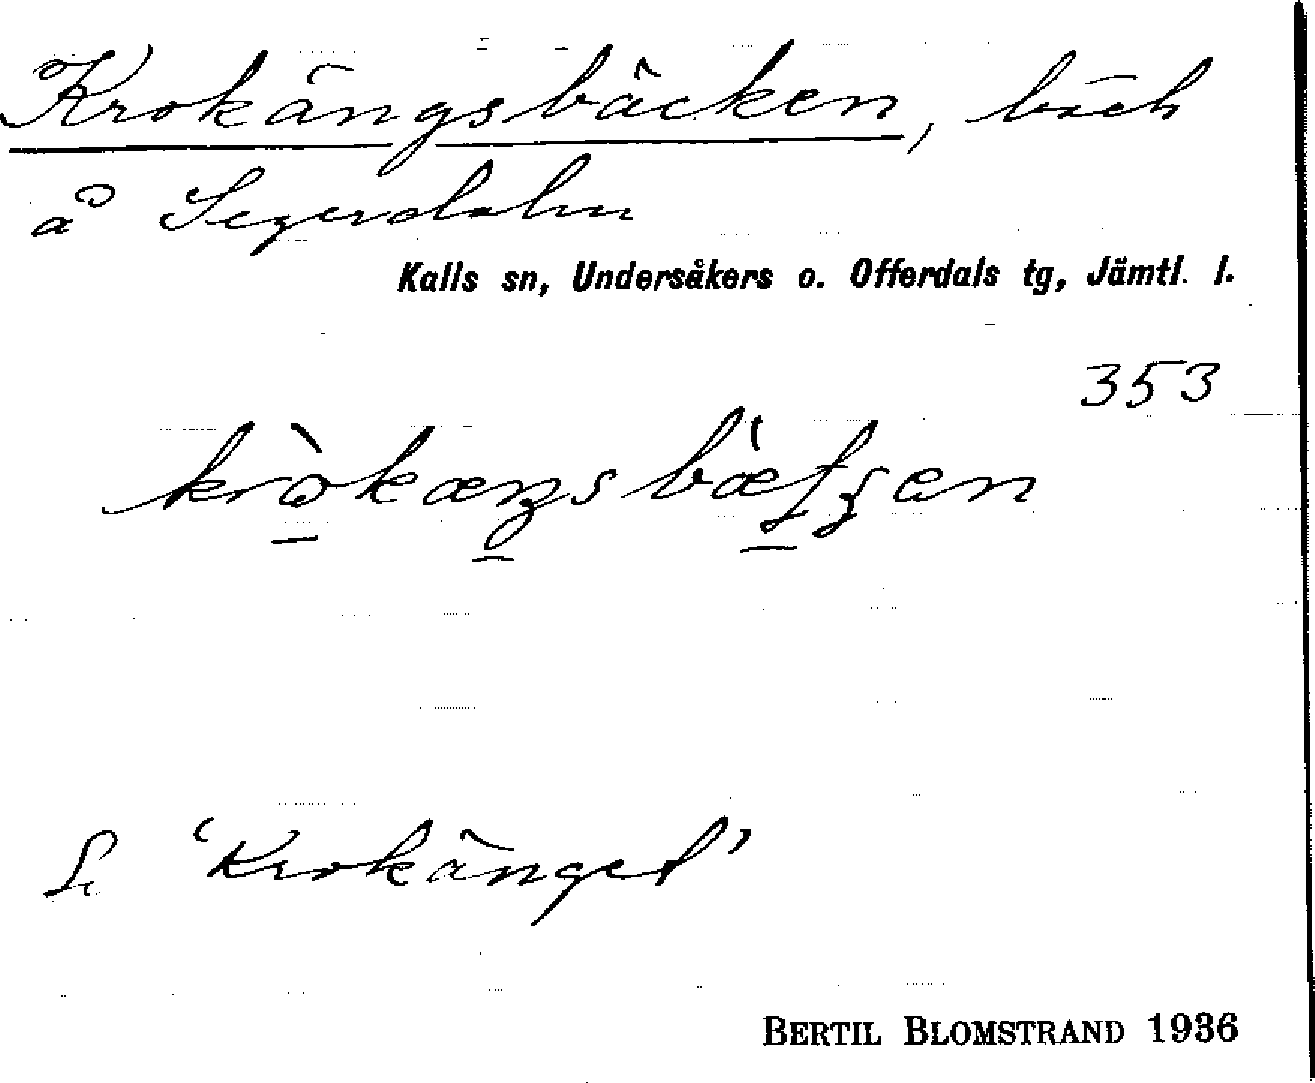 Krokängsbäcken, bäck
å Segerdalen
Kalls sn, Undersåkers o. Offerdals tg, Jämtl. l.
353
Se 'Krokänget'
BERTIL BLOMSTRAND 1936